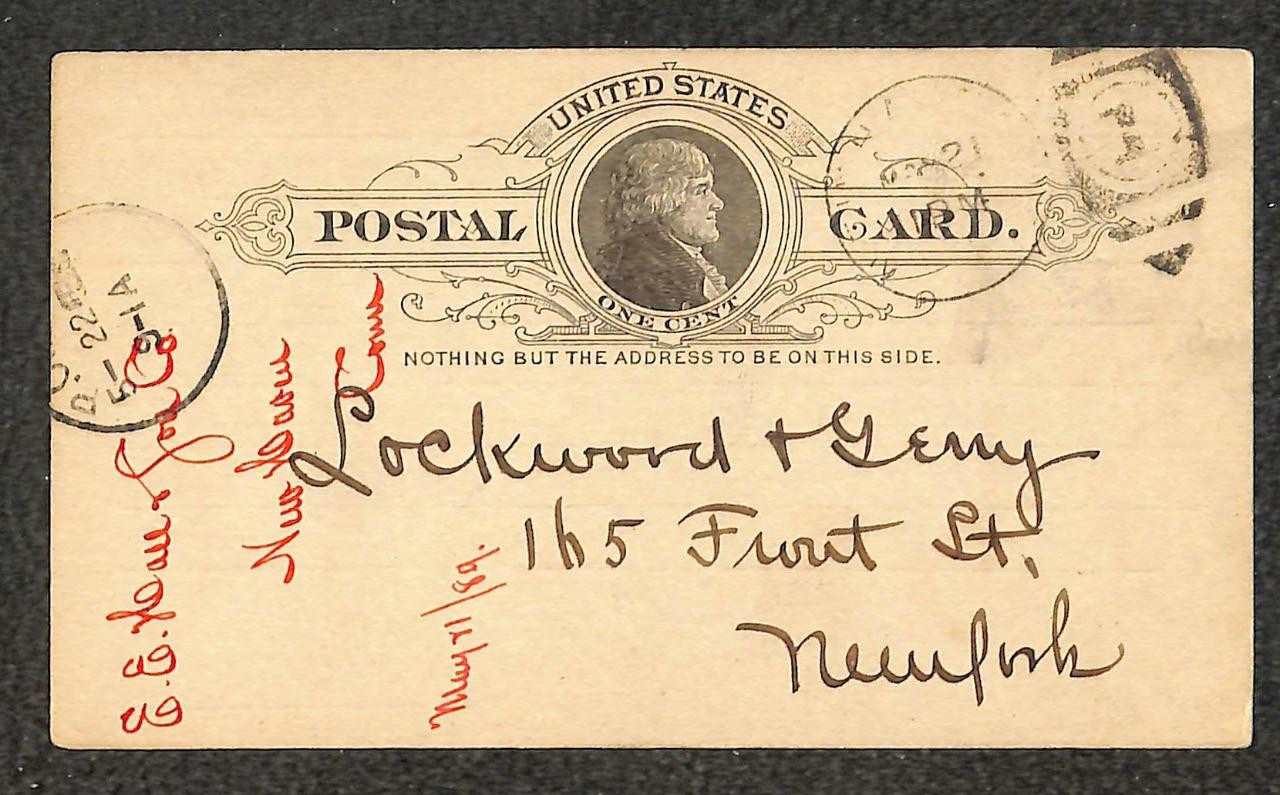 UNITED STATES
POSTAL CARD.
ONE CENT
NOTHING BUT THE ADDRESS TO BE ON THIS SIDE.
Lockwood & Gerry
165 Front St.
New York
E. E. Hall & Son Co
New Haven
Conn
May 21/89.
21
PM
22
5-
9-1A